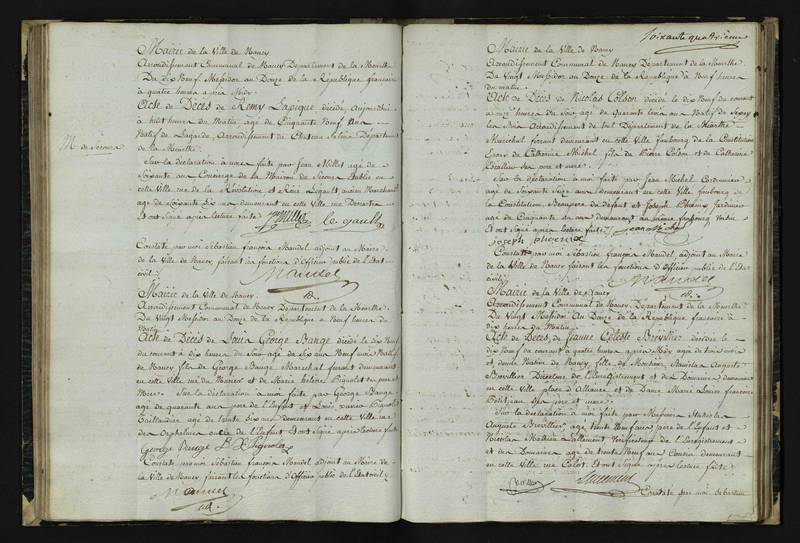 Mairie de la Ville de Nancy
Arrondissement Communal de Nancy Departement de la Meurthe
Du dix Neuf Messidor au Douze de la République française
à quatre heures après Midy
Acte de Décès de Remy Lapique décédé, Aujourd'hui
à huit heures du Matin, agé de Cinquante Neuf Ans
Natif de Lagarde, Arrondissement de Chateau Salins Departement
de la Meurthe.
M. de Secours
Sur la déclaration à moi faite par Jean Millet agé de
Soixante ans Concierge de la Maison de Secours Etablie en
cette Ville rue de la Révolution et Rémi Legault ancien Marchand
agé de Soixante dix ans demeurant en cette Ville rue
Et ont Signé après lecture faite
Constaté par moi Sébastien françois Mandel adjoint au Maire
de la Ville de Nancy faisant les fonctions d'Officier public de l'Etat
civil
Mandel
Mairie de la Ville de Nancy
Arrondissement Communal de Nancy Departement de la Meurthe
Du Vingt Messidor au Douze de la République à Neuf heures du
Matin
Acte de Décès de Louis George Bauge décédé le dix Neuf
du courant à dix heures du Soir agé de Six ans Neuf mois Natif
de Nancy fils de George Bauge Marechal ferrant demeurant
en cette Ville rue et de Marie Pignolet ses pere et
Mere. Sur la déclaration à moi faite par George Bauge
agé de quarante ans pere de l'enfant et Louis Xavier Pignolet
Taillandier agé de trente six ans demeurant en cette Ville rue
des Orphelines oncle de l'Enfant Et ont Signé après lecture faite
George Bauge L X Pignolet
Constaté par moi Sébastien françois Mandel adjoint au Maire de
la Ville de Nancy faisant les fonctions d'Officier public de l'Etat civil
Mandel
Soixante quatrieme
Mairie de la Ville de Nancy
Arrondissement Communal de Nancy Departement de la Meurthe
Du Vingt Messidor au Douze de la République à Neuf heures
du matin
Acte de Décès de Nicolas Colson décédé le dix Neuf du courant
à heures du Soir agé de quarante ans Natif de
Arrondissement de Toul Departement de la Meurthe
Marechal ferrant demeurant en cette Ville faubourg de la Constitution
Epoux de Catherine Michel fils de Pierre Colson et de Catherine
ses pere et mere.
Sur la déclaration à moi faite par Jean Michel
agé de Soixante Seize ans demeurant en cette Ville faubourg de
la Constitution, Beaupere du défunt et Joseph Jardinier
agé de Cinquante six ans demeurant au même faubourg
Et ont Signé après lecture faite
Constaté par moi Sébastien françois Mandel, adjoint au Maire
de la Ville de Nancy faisant les fonctions d'Officier public de l'Etat
civil
Mandel
Mairie de la Ville de Nancy
Arrondissement Communal de Nancy Departement de la Meurthe
Du Vingt Messidor Au Douze de la République française à
dix heures du Matin
Acte de Décès de Jeanne Céleste Brevillier décédée le
dix Neuf du courant à quatre heures après Midy agée de trois mois
et demi Native de Nancy fille de Monsieur Stanislas Auguste
Brevillier Directeur de l'Enregistrement et des Domaines demeurant
en cette Ville place d'Alliance et de Dame Marie Louise françoise
Petitjean ses pere et mere.
Sur la déclaration à moi faite par Monsieur Stanislas
Auguste Brevillier, agé trente Neuf ans, pere de l'Enfant et
Nicolas Mathieu Lallement Verificateur de l'Enregistrement
et des Domaines agé de trente Neuf ans Cousin demeurant
en cette Ville rue Callot. Et ont Signé après lecture faite
Brevillier Lallement
Constaté par moi Sébastien